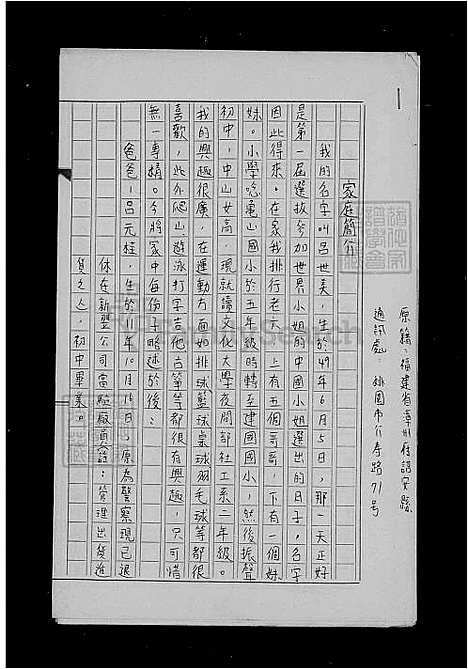 家庭簡介
原籍：福建省漳州府詔安縣
通訊處：桃園市仁壽路71號
我的名字叫呂世美，生於49年6月5日，那一天正好
是第一屆選拔參加世界小姐的中國小姐選出的日子，名字
因此得來。在家我排行老六，上有五個哥哥，下有一個妹
妹。小學唸龜山國小於五年級時轉至建國國小，然後振聲
初中，中山女高，現就讀文化大學夜間部社工系二年級。
我的興趣很廣，在運動方面如排球籃球桌球羽毛球等都很
喜歡，此外爬山、游泳打字吉他古箏等都很有興趣，只可惜
無一專精。今將家中每份子略述於後：
爸爸，呂元桂，生於11年10月16日，原為警察現已退
休在新翌公司當駐廠員（註：管理出貨進
貨之人），初中畢業。